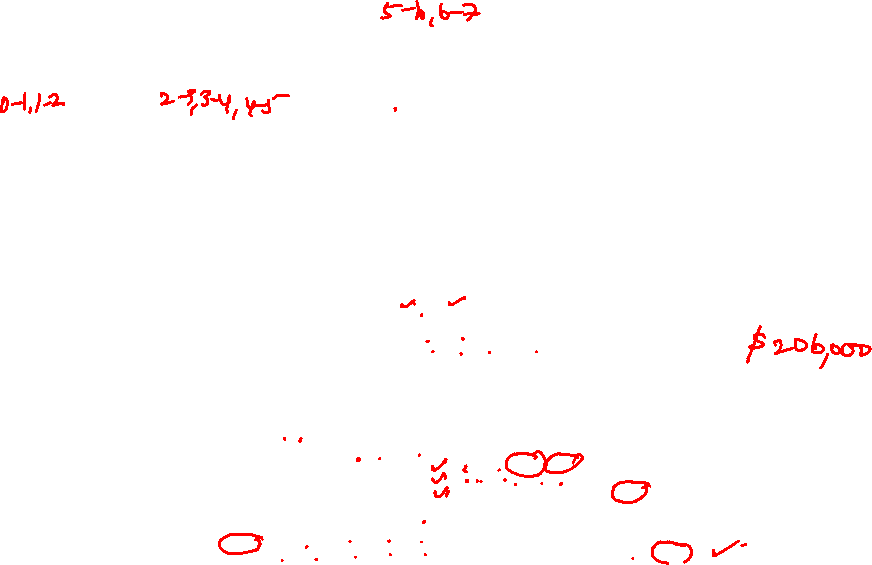 5-6, 6-7
0-1, 1-2 2-3, 3-4, 4-5
$206,000